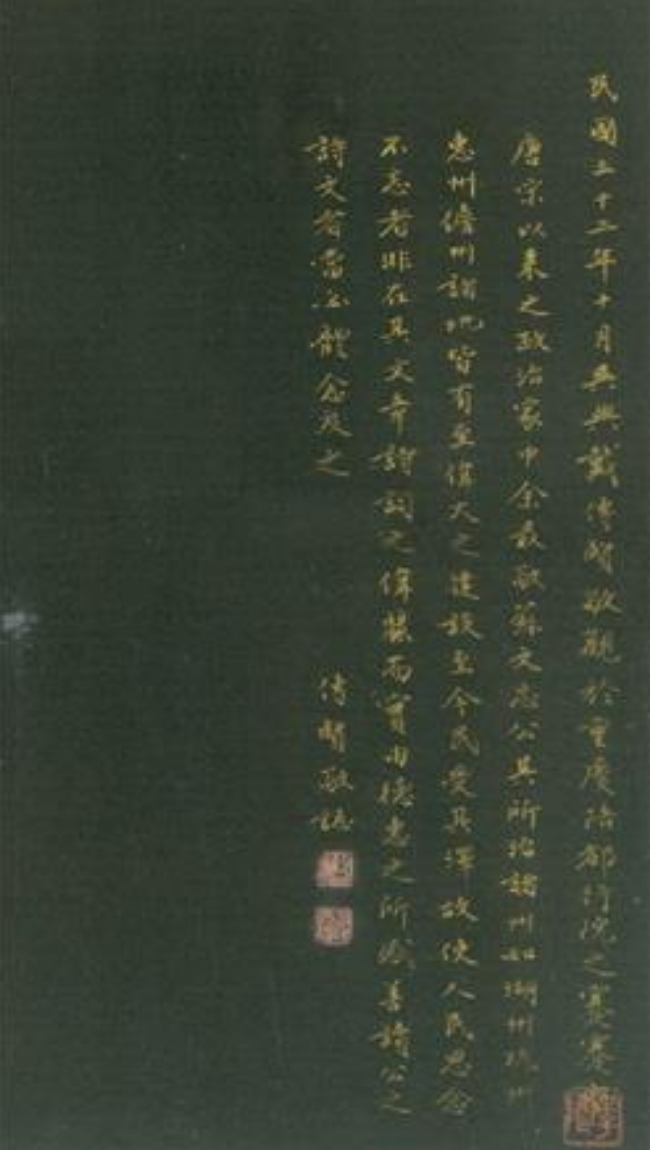 民國三十二年十月吳興戴傳賢敬觀於重慶陪都行院之
唐宋以來之政治家中余最敬蘇文忠公其所治諸州如湖州杭州
惠州儋州諸地皆有至偉大之建設至今民受其澤故使人民思念
不忘者非在其文章詩詞之偉麗而實由德惠之所感善讀公之
詩文者當必體念及之
傳賢敬誌